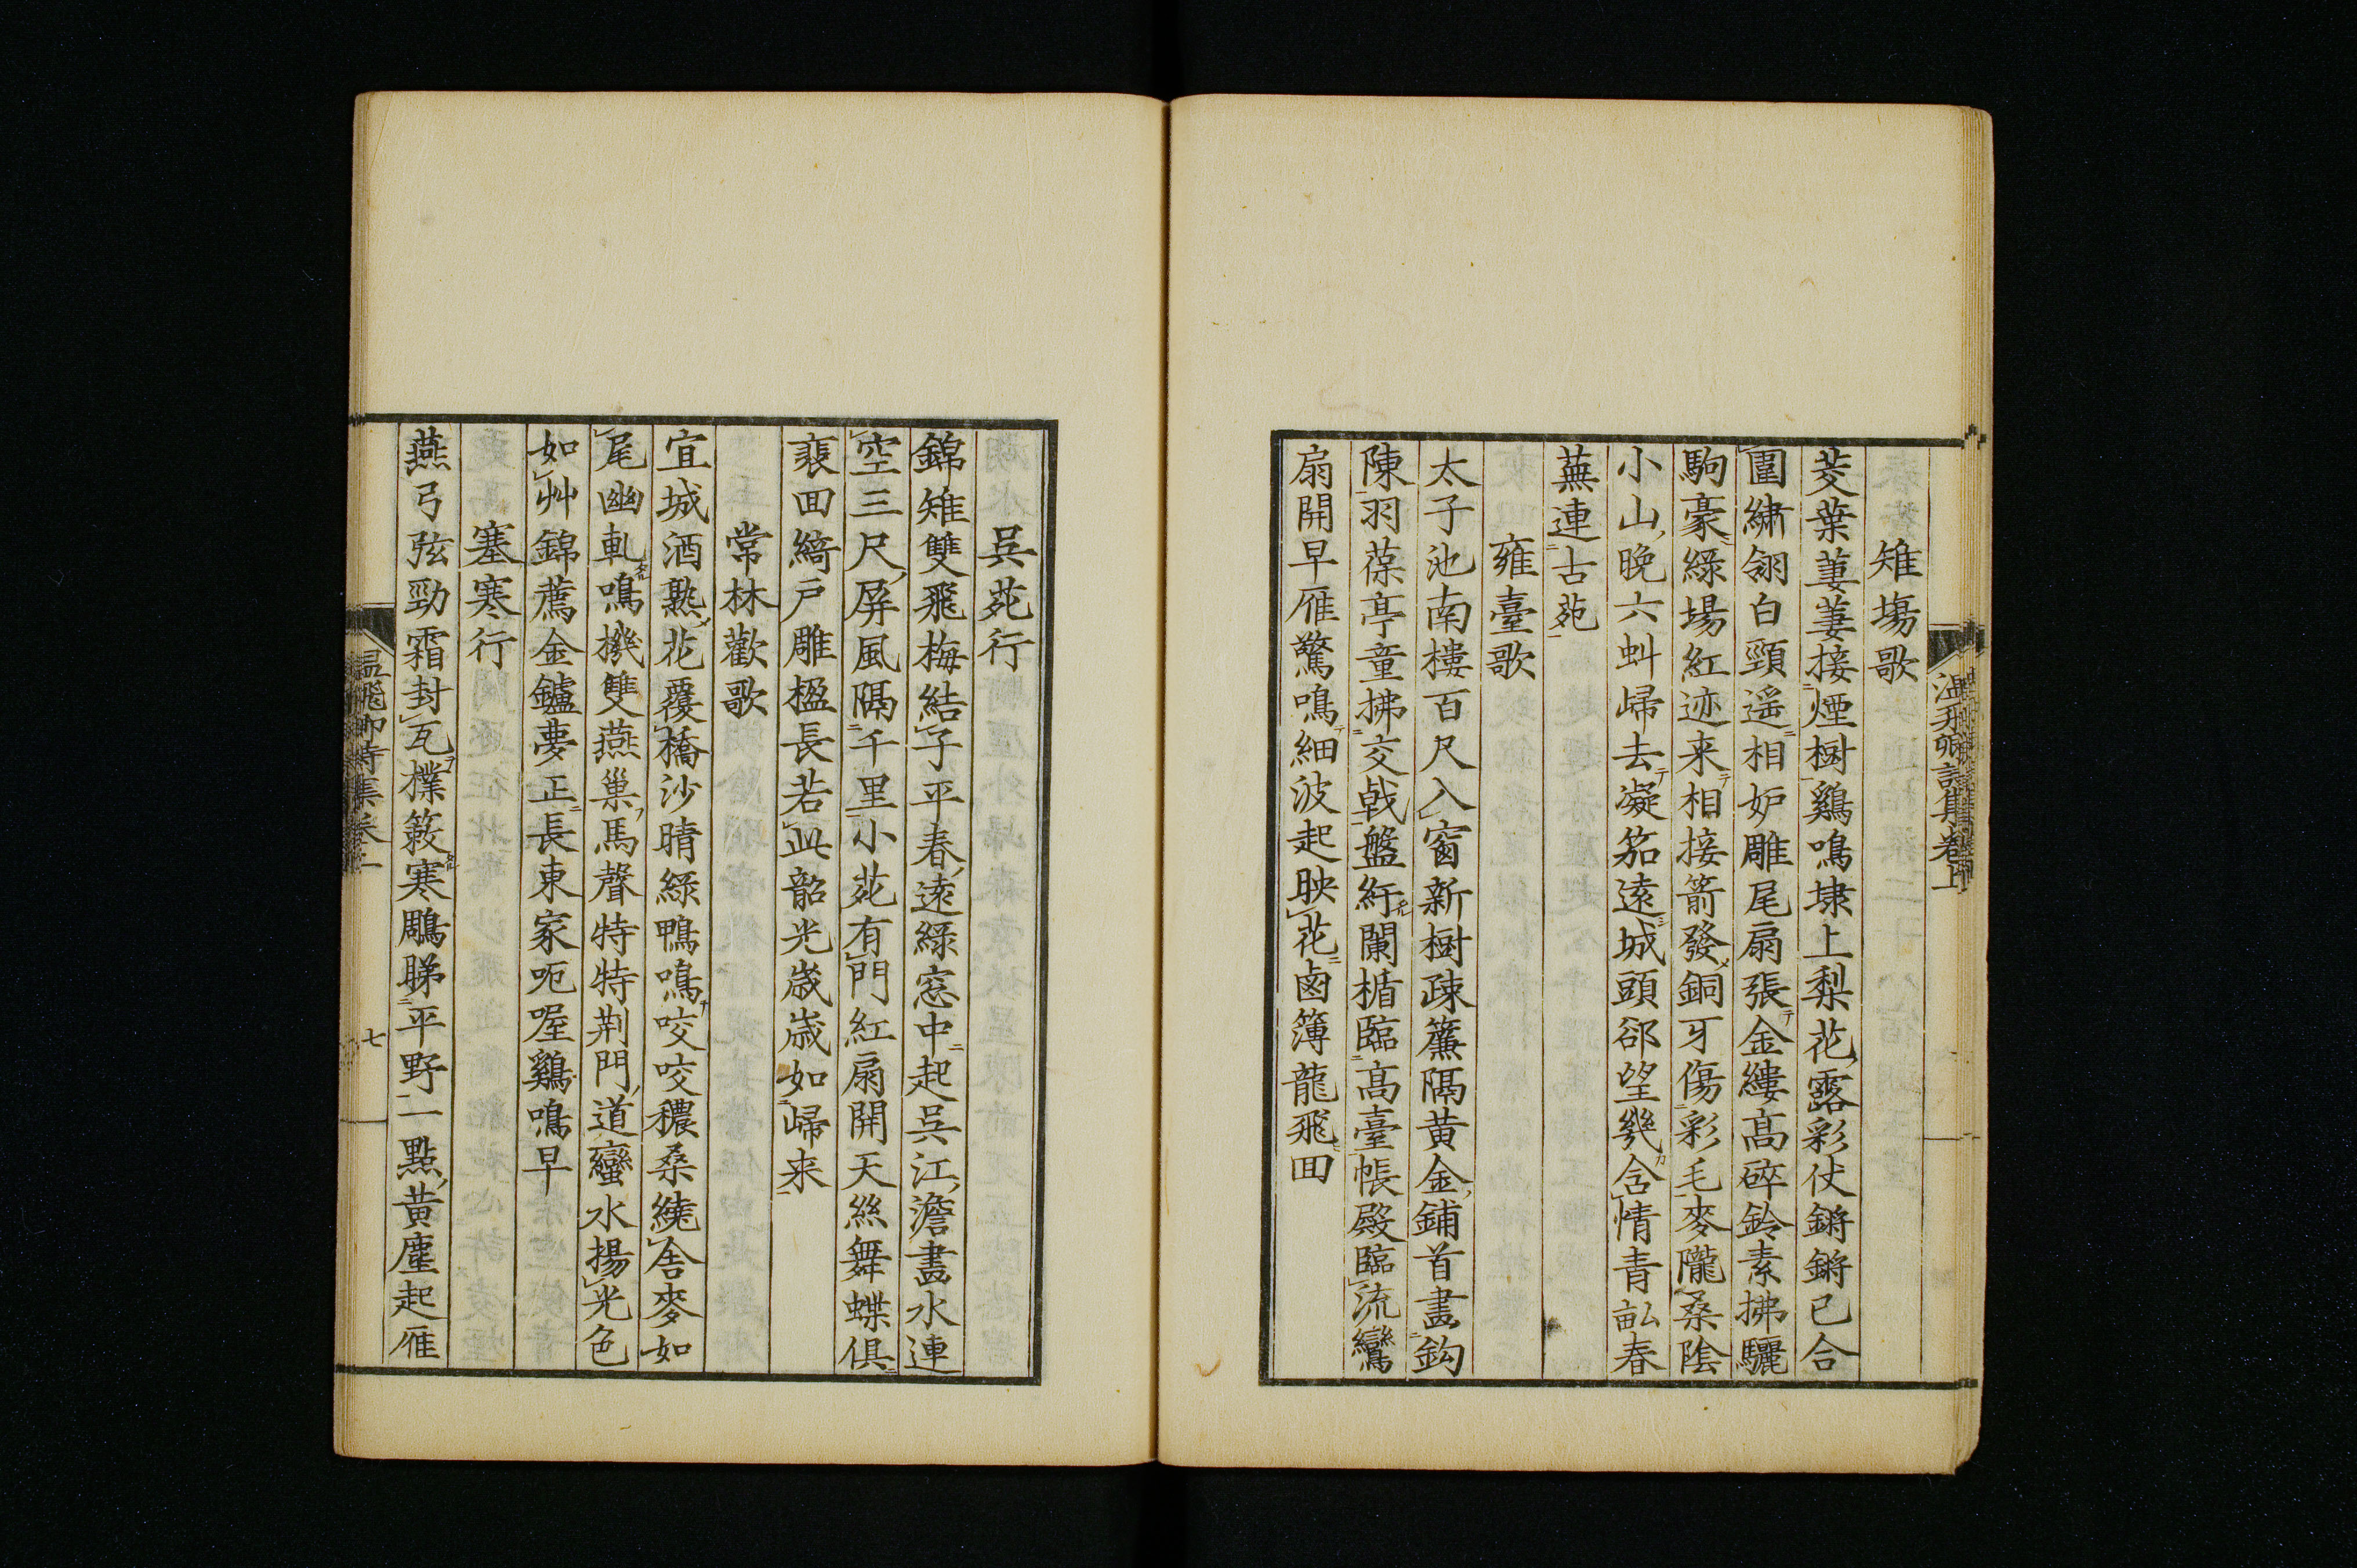 雉場歌
茭葉萋萋接煙樹鷄鳴埭上梨花露彩仗鏘鏘已合
圍繍翎白頸遥相妒雕尾扇張金縷高碎鈴素拂驪
駒豪綠場紅迹来相接箭發銅牙傷彩毛麥隴桑陰
小山晚六虯歸去凝笳遠城頭卻望幾含情青畝春
蕪連古苑
雍臺歌
太子池南樓百尺入窗新樹疎簾隔黄金鋪首畫鈎
陳羽葆亭童拂交戟盤紆闌楯臨高臺帳殿臨流鸞
扇開早雁驚鳴細波起映花鹵簿龍飛回
吳苑行
錦雉雙飛梅結子平春遠綠窓中起吳江澹畫水連
空三尺屏風隔千里小苑有門紅扇開天絲舞蝶俱
裵回綺戸雕楹長若此韶光歳歳如歸来
常林歡歌
宜城酒熟花覆橋沙晴綠鴨鳴咬咬穠桑繞舍麥如
尾幽軋鳴機雙燕巢馬聲特特荆門道蠻水揚光色
如艸錦薦金鑪夢正長東家呃喔鷄鳴早
塞寒行
燕弓弦勁霜封瓦樸簌寒鵰睇平野一點黄塵起雁
温飛卿詩集卷一
七